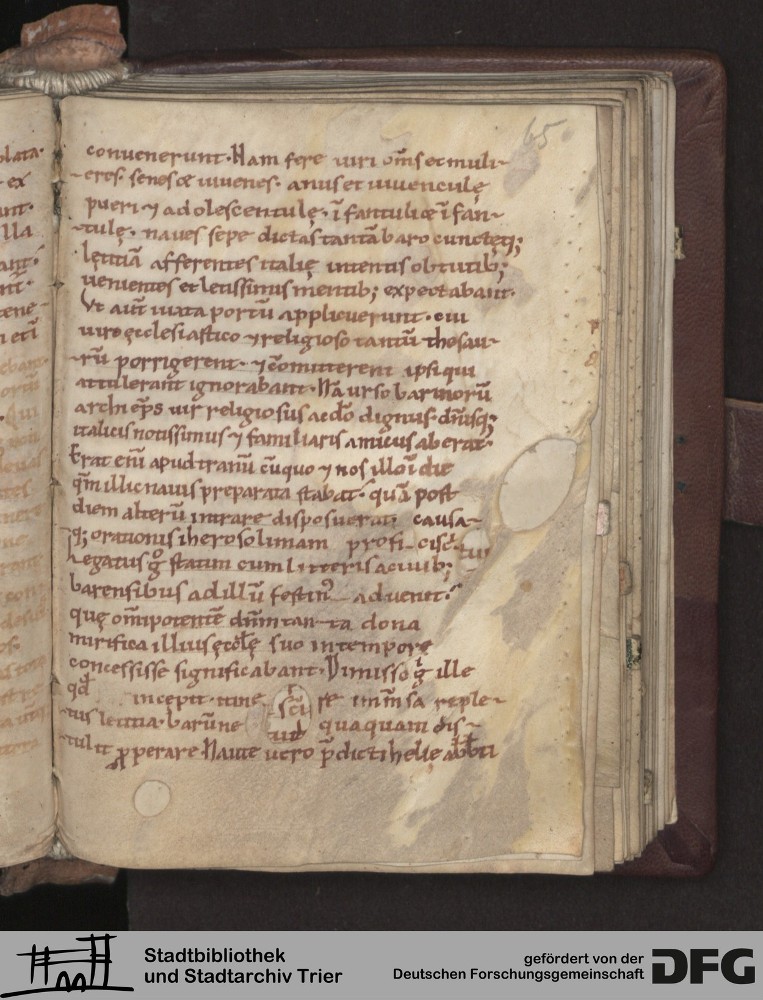 65
conuenerunt. Nam fere uiri om̄s et muli-
eres. senes & iuuenes. anus et iuuenculę
pueri ⁊ adolescentulę. īfantuli & īfan-
tulę. naues sepe dictas tantā baro cunctęq;
lętitiā afferentes italię intentis obtutib;
uenientes et letissimis mentib; expectabant.
Vt aut̄ iuxta portū applicuerunt. cui
uiro ęcclesiastico ⁊ religioso tantū thosau-
rū porrigerent. ⁊ cōmitterent ipsi qui
attulerant ignorabant. Nā urso barinorū
archiep̄s uir religiosus ac dō dignus. dn̄isq;
italicis notissimus ⁊ familiaris amicus aberat.
Erat eni᷒ apud tranū cū quo ⁊ nos illo ī die
qm̄ illic nauis preparata stabat. quā post
diem alterū intrare disposuerat. causa-
q; orationis iherosolimam profi-cisci-tur
Legatus g̊ statim cum litteris a ciuib;
barensibus ad illū festin᷒ aduenit.
quę om̄ipotentē dn̄m tan-ta dona
mirifica illius ęcclę suo in tempore
concessisse significabant. Dimisso g̊ ille
qd̄ incepit itine re imm̄sa reple-
tus letitia. barū ne quaquam dis-
sci
ut
tulit ꝓperare. Naute uero p̄dicti helię abb̄ti
lata.
ex
lla
Stadtbibliothek
und Stadtarchiv Trier
gefördert von der
Deutschen Forschungsgemeinschaft
DFG